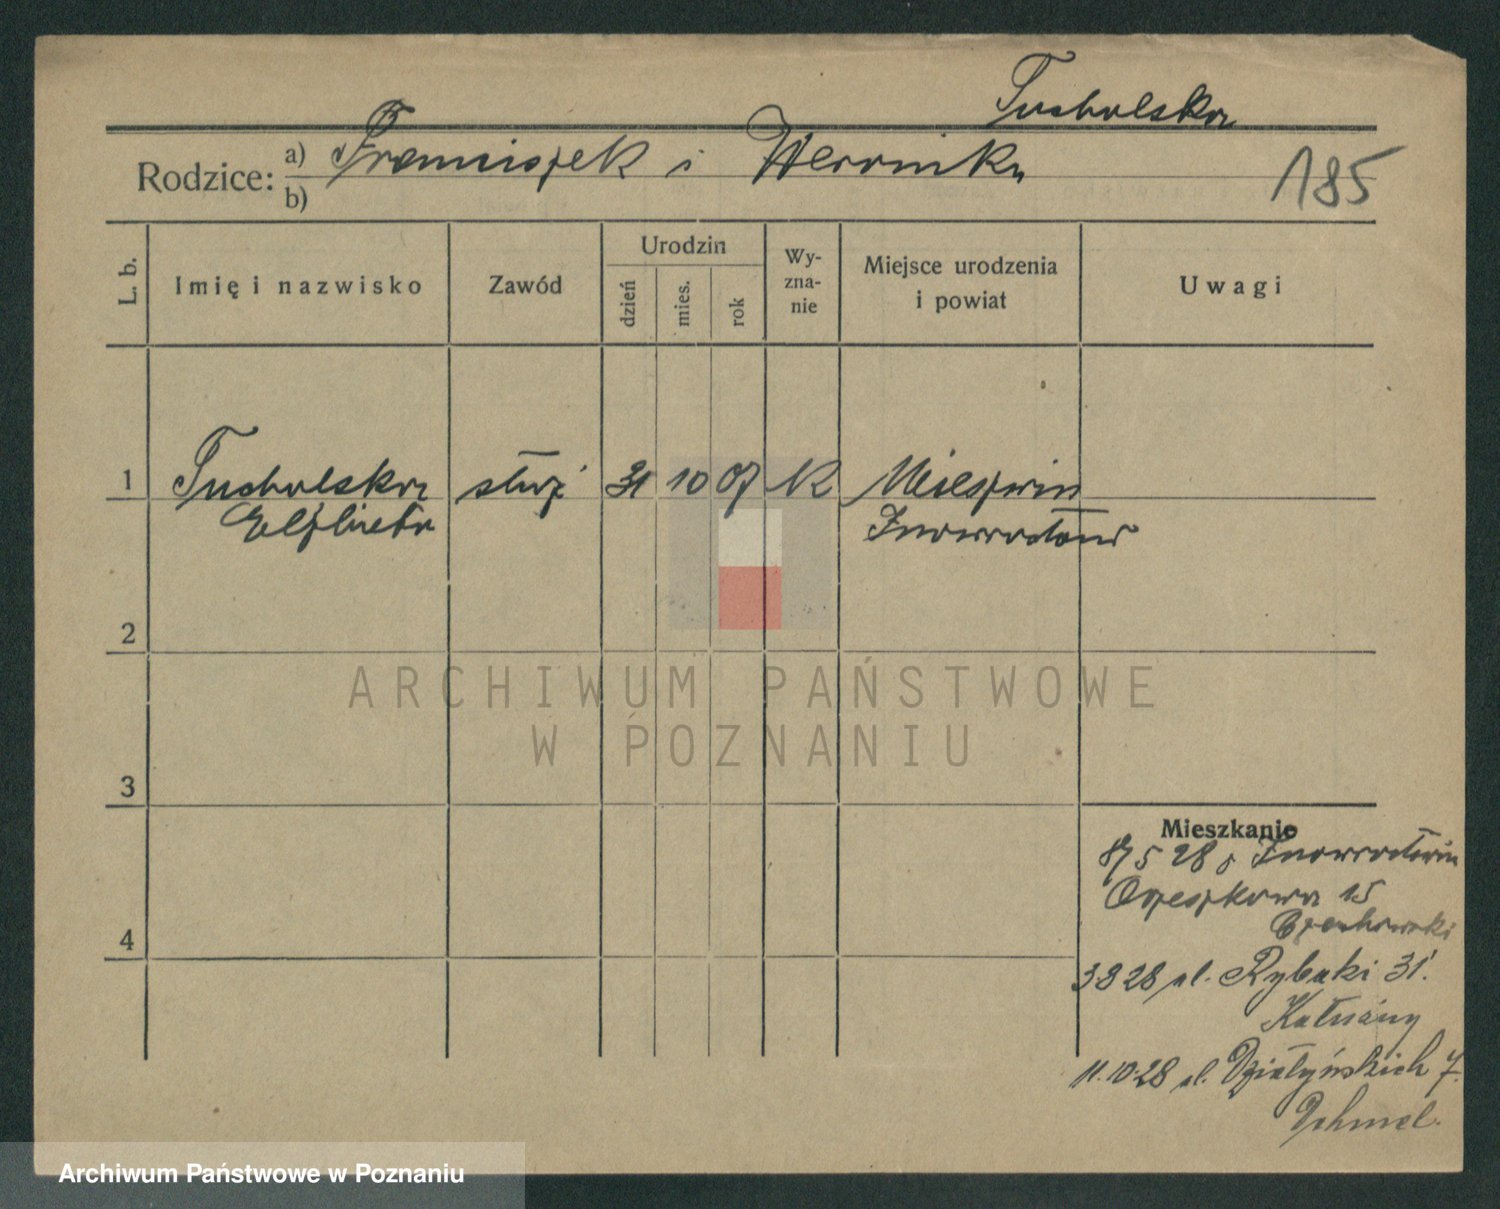 Tucholska
Rodzice: a) Franciszek i Weronika
b)
185
L. b.
Imię i nazwisko
Zawód
Urodzin
dzień
mies.
rok
Wy-
zna-
nie
Miejsce urodzenia
i powiat
Uwagi
1 Tucholska służ 31 10 07 K
Elżbieta Inowrocław
2
3
4
Mieszkanie
5 28 z Inowrocławia
Orzeszkowa 15
Czechowski
3 8 28 ul. Rybaki 31.
11.10.28 ul. Działyńskich 7.
ARCHIWUM PAŃSTWOWE
W POZNANIU
Archiwum Państwowe w Poznaniu